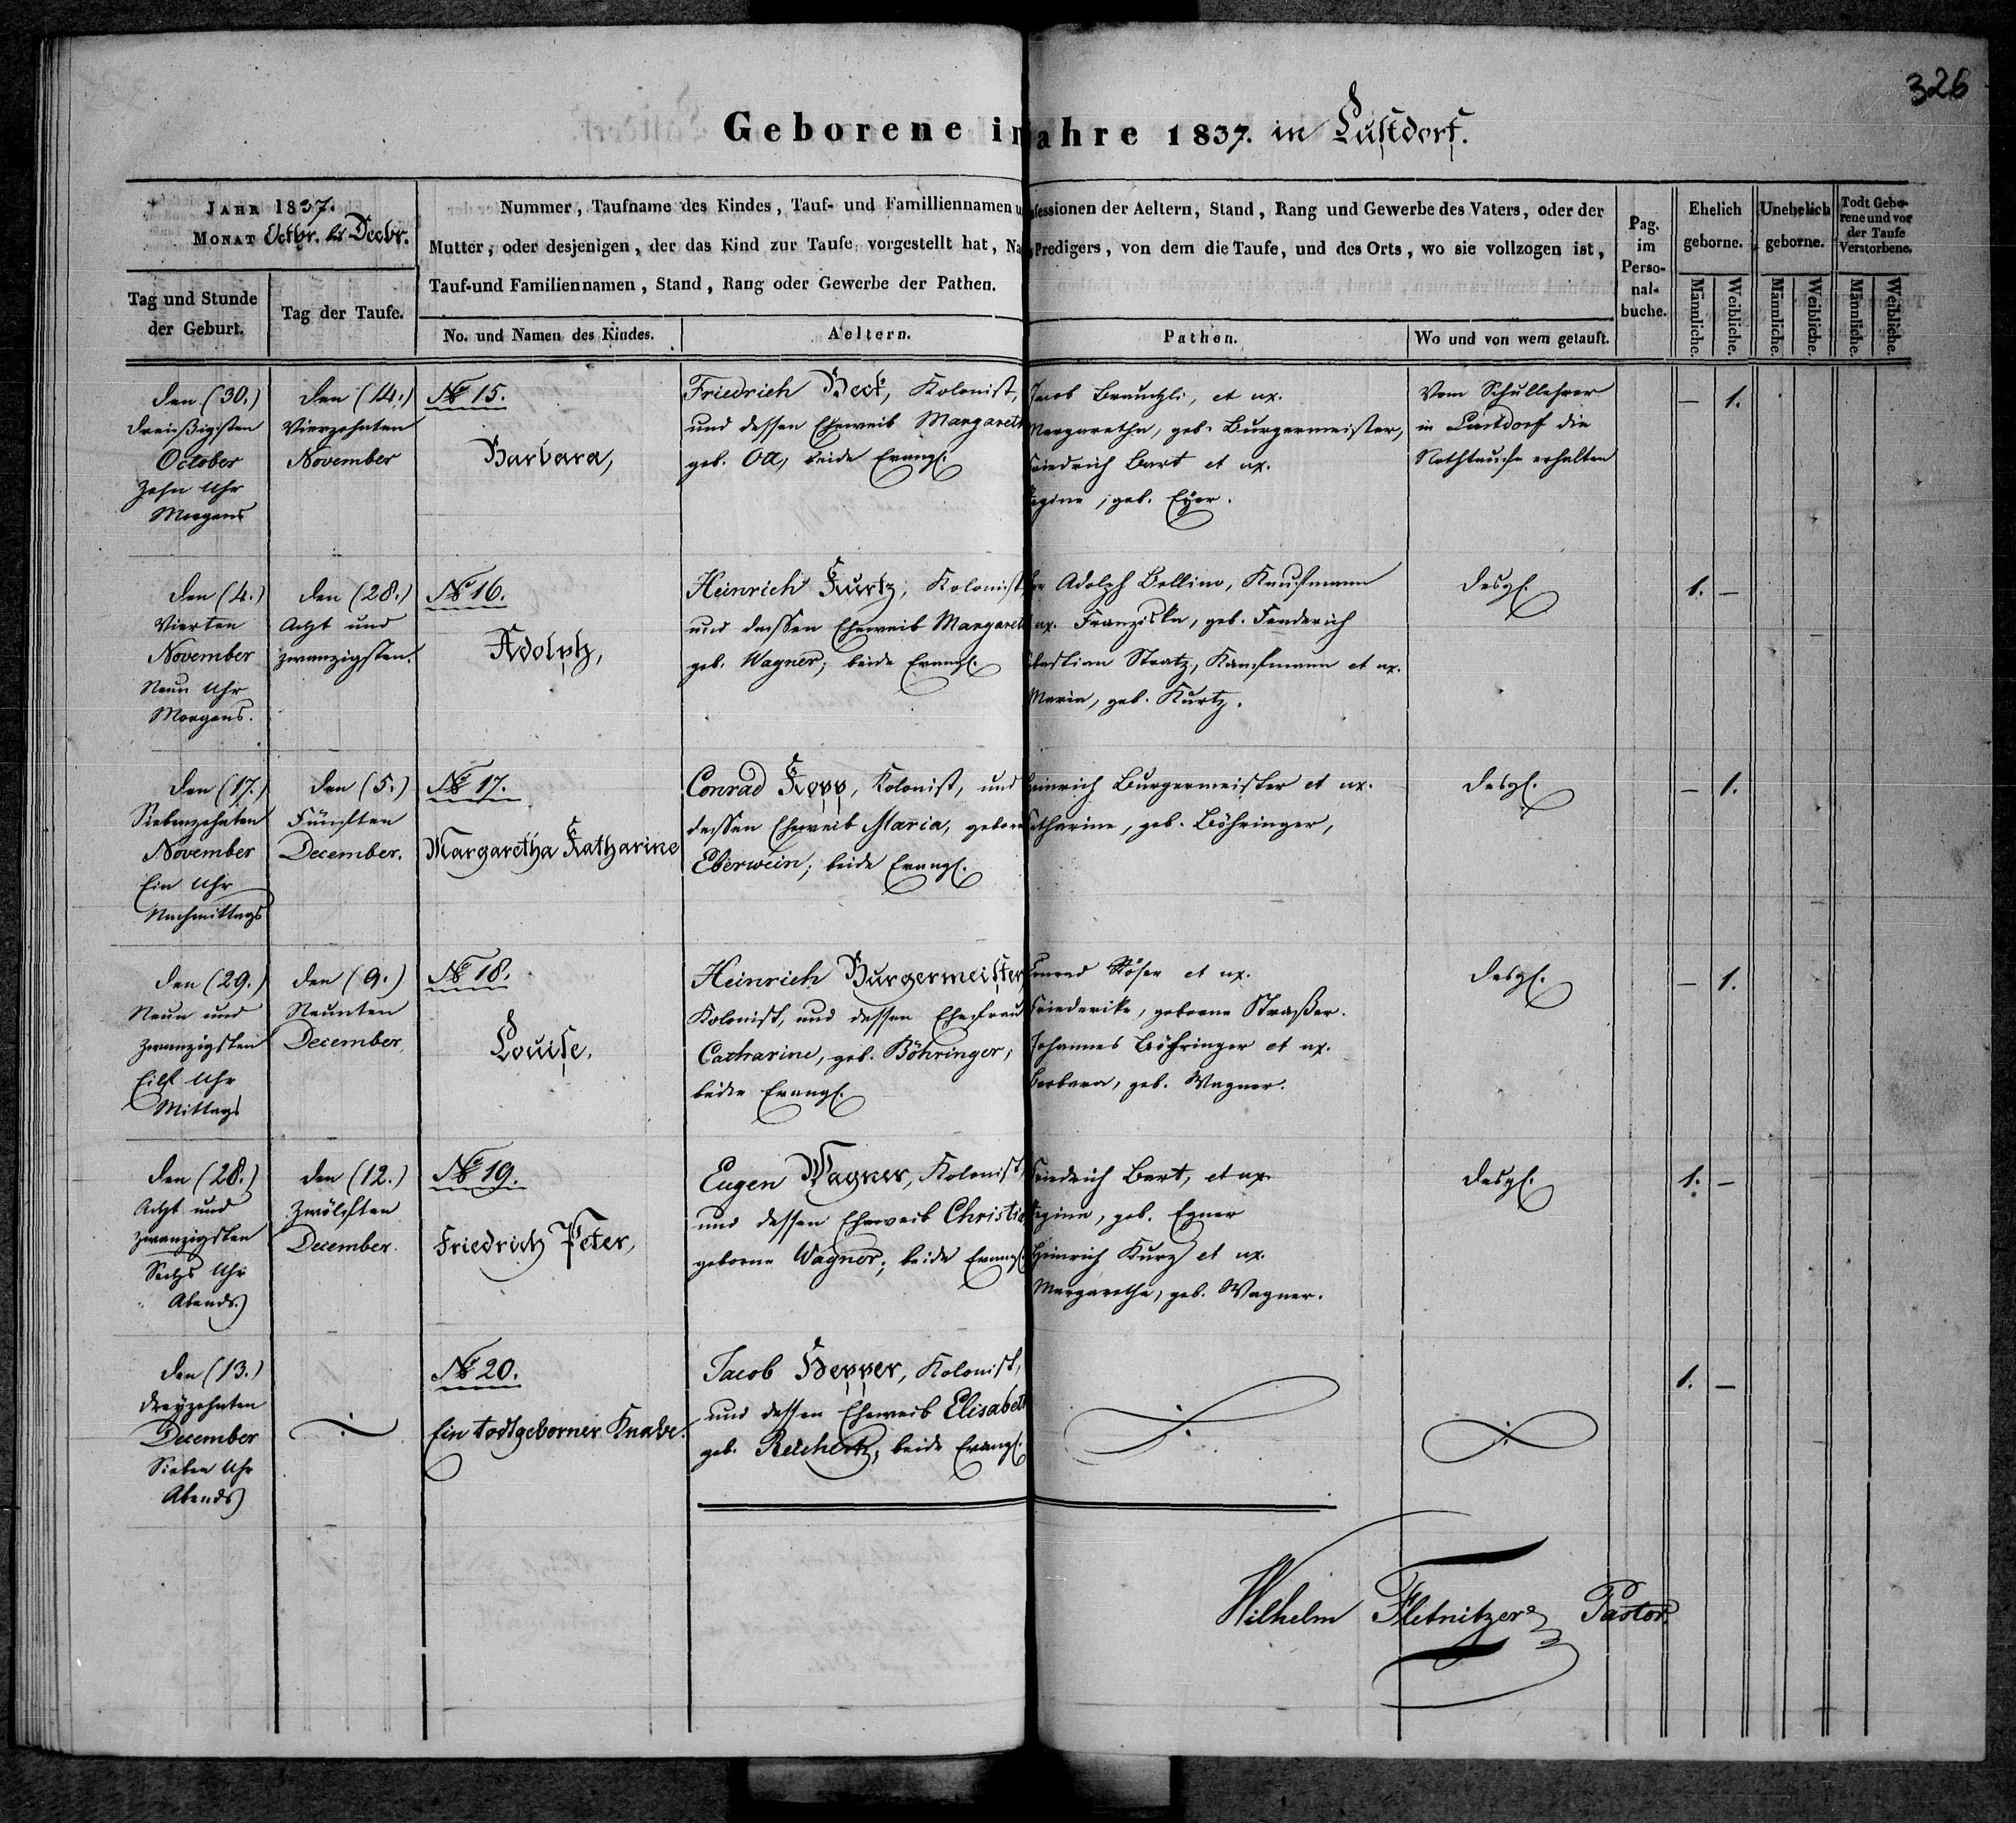 326
Geborene in Jahre 1837. in Lustdorf.
JAHR 1837.
MONAT Octbr. bis Decbr.
Tag und Stunde
der Geburt.
Tag der Taufe.
Nummer, Taufname des Kindes, Tauf- und Familliennamen
fessionen der Aeltern, Stand, Rang und Gewerbe des Vaters, oder der
Mutter, oder desjenigen, der das Kind zur Taufe vorgestellt hat,
Predigers, von dem die Taufe, und des Orts, wo sie vollzogen ist,
Tauf-und Familiennamen, Stand, Rang oder Gewerbe der Pathen.
No. und Namen des Kindes.
Aeltern.
Pathen.
Wo und von wem getauft.
Pag.
im
Perso-
nal-
buche.
Ehelich
geborne.
Unehelich
geborne.
Todt Gebo-
rene und vor
der Taufe
Verstorbene.
Männliche.
Weibliche.
Männliche.
Weibliche.
Männliche.
Weibliche.
den (30.)
dreißigsten
October
Zehn Uhr
Morgens
den (14.)
Vierzehnten
November
№ 15.
Barbara,
Friedrich Beck, Kolonist,
und dessen Eheweib Margareth
geb. Ott, beide Evangl.
Jacob Brauchli, et ux.
Margaretha, geb. Burgermeister,
Friedrich Bart et ux.
Regine, geb. Eger.
Vom Schullehrer
in Lustdorf die
Nothtaufe erhalten
— 1.
den (4.)
Vierten
November
Neun Uhr
Morgens.
den (28.)
Acht und
zwanzigsten.
№ 16.
Adolph,
Heinrich Kurtz, Kolonist
und dessen Eheweib Margareth
geb. Wagner; beide Evangl.
Adolph Bellino, Kaufmann
ux. Franziska, geb. Fenderich
Sebastian Stratz, Kaufmann et ux.
Maria, geb. Kurtz.
desgl.
1. —
den (17.)
Siebenzehnten
November
Ein Uhr
Nachmittags
den (5.)
Fünften
December.
№ 17.
Margaretha Katharine
Conrad Kopp, Kolonist, und
dessen Eheweib Maria, gebore
Eberwein; beide Evangl.
Heinrich Burgermeister et ux.
Catharine, geb. Böhringer,
desgl.
— 1.
den (29.)
Neun und
zwanzigsten
Eilf Uhr
Mittags
den (9.)
Neunten
December,
№ 18.
Louise,
Heinrich Burgermeister,
Kolonist, und dessen Ehefrau
Catharine, geb. Böhringer;
beide Evangl.
Conrad Röser et ux.
Friederike, geborne Straßer.
Johannes Böhringer et ux.
Barbara, geb. Wagner.
desgl.
— 1.
den (28.)
Acht und
zwanzigsten
Sechs Uhr
Abends.
den (12.)
Zwölften
December.
№ 19.
Friedrich Peter,
Eugen Wagner, Kolonist,
und dessen Eheweib Christi
geborne Wagner; beide Evangl.
Friedrich Bart, et ux.
Regine, geb. Egner
Heinrich Kurz et ux.
Margaretha, geb. Wagner.
desgl.
1. —
den (13.)
dreyzehnten
December
Sieben Uhr
Abends
№ 20.
Ein todtgeborner Knabe.
Jacob Hepper, Kolonist,
und dessen Eheweib Elisabeth
geb. Reichert; beide Evangl.
1. —
Wilhelm Fletnitzer Pastor.